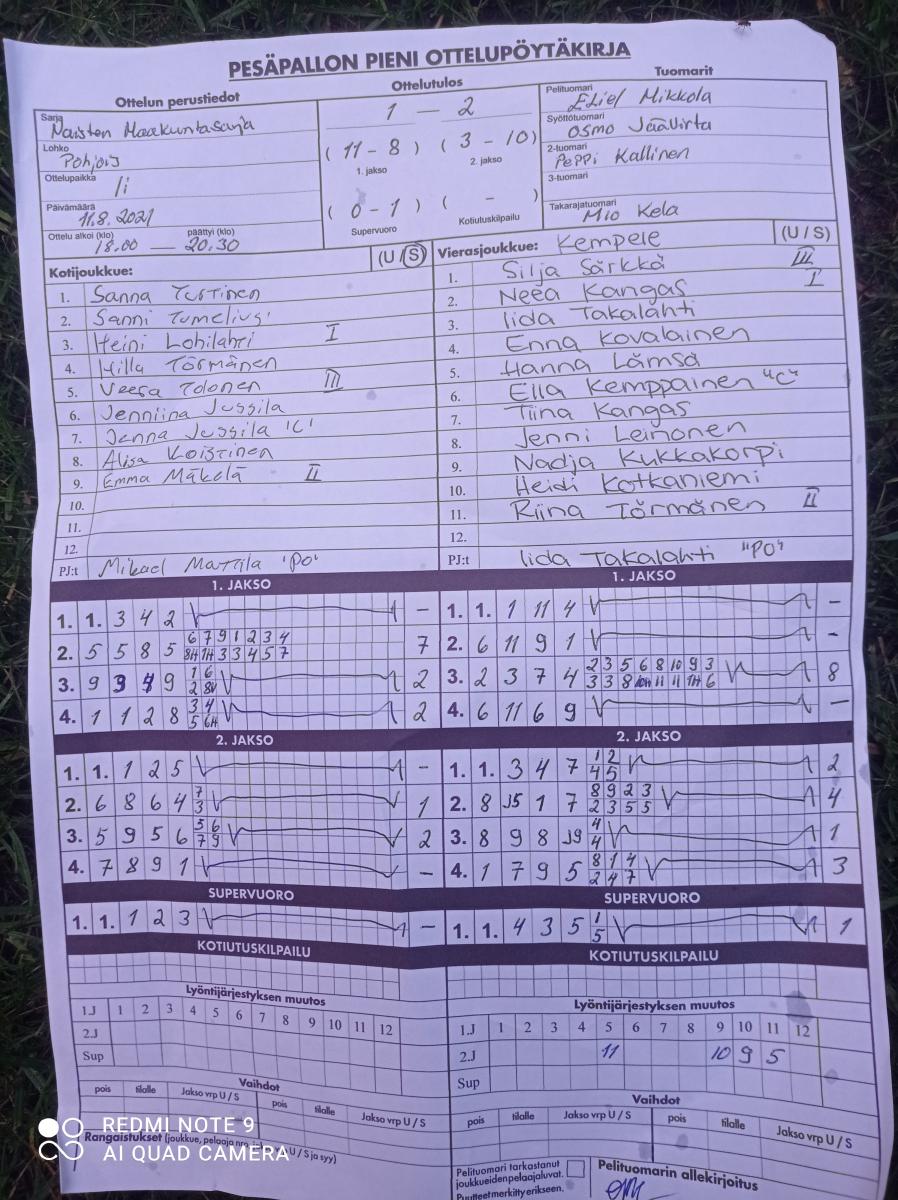 PESÄPALLON PIENI OTTELUPÖYTÄKIRJA
Ottelun perustiedot
Ottelutulos
Tuomarit
Sarja
Naisten Maakuntasarja
Lohko
Pohjois
Ottelupaikka
Ii
Päivämäärä
11.8.2021
Ottelu alkoi (klo) päättyi (klo)
18.00 — 20.30
1 — 2
(11 - 8) (3 - 10)
1. jakso 2. jakso
(0 - 1) ( - )
Supervuoro Kotiutuskilpailu
Pelituomari
Mikkola
Syöttötuomari
Osmo Jäävirta
2-tuomari
Peppi Kallinen
3-tuomari
Takarajatuomari
Mio Kela
Kotijoukkue: (U/S)
1. Sanna Tuttinen
2. Sanni Tumelius
3. Heini Lohilahti I
4. Hilla Törmänen
5. Veera Tolonen III
6. Jenniina Jussila
7. Janna Jussila 'C'
8. Alisa Koistinen
9. Emma Mäkelä II
10.
11.
12.
PJ:t Mikael Mattila 'PO'
Vierasjoukkue: Kempele (U/S)
1. Silja Särkkä III
2. Neea Kangas I
3. Iida Takalahti
4. Enna Kovalainen
5. Hanna Lämsä
6. Ella Kemppainen "C"
7. Tiina Kangas
8. Jenni Leinonen
9. Nadja Kukkakorpi
10. Heidi Kotkaniemi
11. Riina Törmänen II
12.
PJ:t Iida Takalahti "PO"
1. JAKSO
1. 1. 3 4 2 –
2. 5 5 8 5 6 7 9 1 2 3 4 7
8H 1H 3 3 4 5 7
3. 9 3 9 1 6 2
2
4. 1 1 2 8 3 4 2
5 6H
2. JAKSO
1. 1. 1 2 5 –
2. 6 8 6 4 7 1
3
3. 5 9 5 6 5 6 2
7 9
4. 7 8 9 1 –
SUPERVUORO
1. 1. 1 2 3 –
KOTIUTUSKILPAILU
Lyöntijärjestyksen muutos
1.J 1 2 3 4 5 6 7 8 9 10 11 12
2.J
Sup
Vaihdot
pois tilalle Jakso vrp U / S pois tilalle Jakso vrp U / S
Rangaistukset (joukkue, pelaaja
U / S ja syy)
1. JAKSO
1. 1. 1 11 4 –
2. 6 11 9 1 –
3. 2 3 7 4 2 3 5 6 8 10 9 3 8
3 3 8 10H 11 11 1H 6
4. 6 11 6 9 –
2. JAKSO
1. 1. 3 4 7 1 2 2
4 5
2. 8 J5 1 7 8 9 2 3 4
2 3 5 5
3. 8 9 8 J9 4 1
4
4. 1 7 9 5 8 1 4 3
2 4 7
SUPERVUORO
1. 1. 4 3 5 1 1
5
KOTIUTUSKILPAILU
Lyöntijärjestyksen muutos
1.J 1 2 3 4 5 6 7 8 9 10 11 12
2.J 11 10 9 5
Sup
Vaihdot
pois tilalle Jakso vrp U / S pois tilalle Jakso vrp U / S
Pelituomari tarkastanut
joukkueiden pelaajaluvat.
Puutteet merkitty erikseen.
Pelituomarin allekirjoitus
REDMI NOTE 9
AI QUAD CAMERA